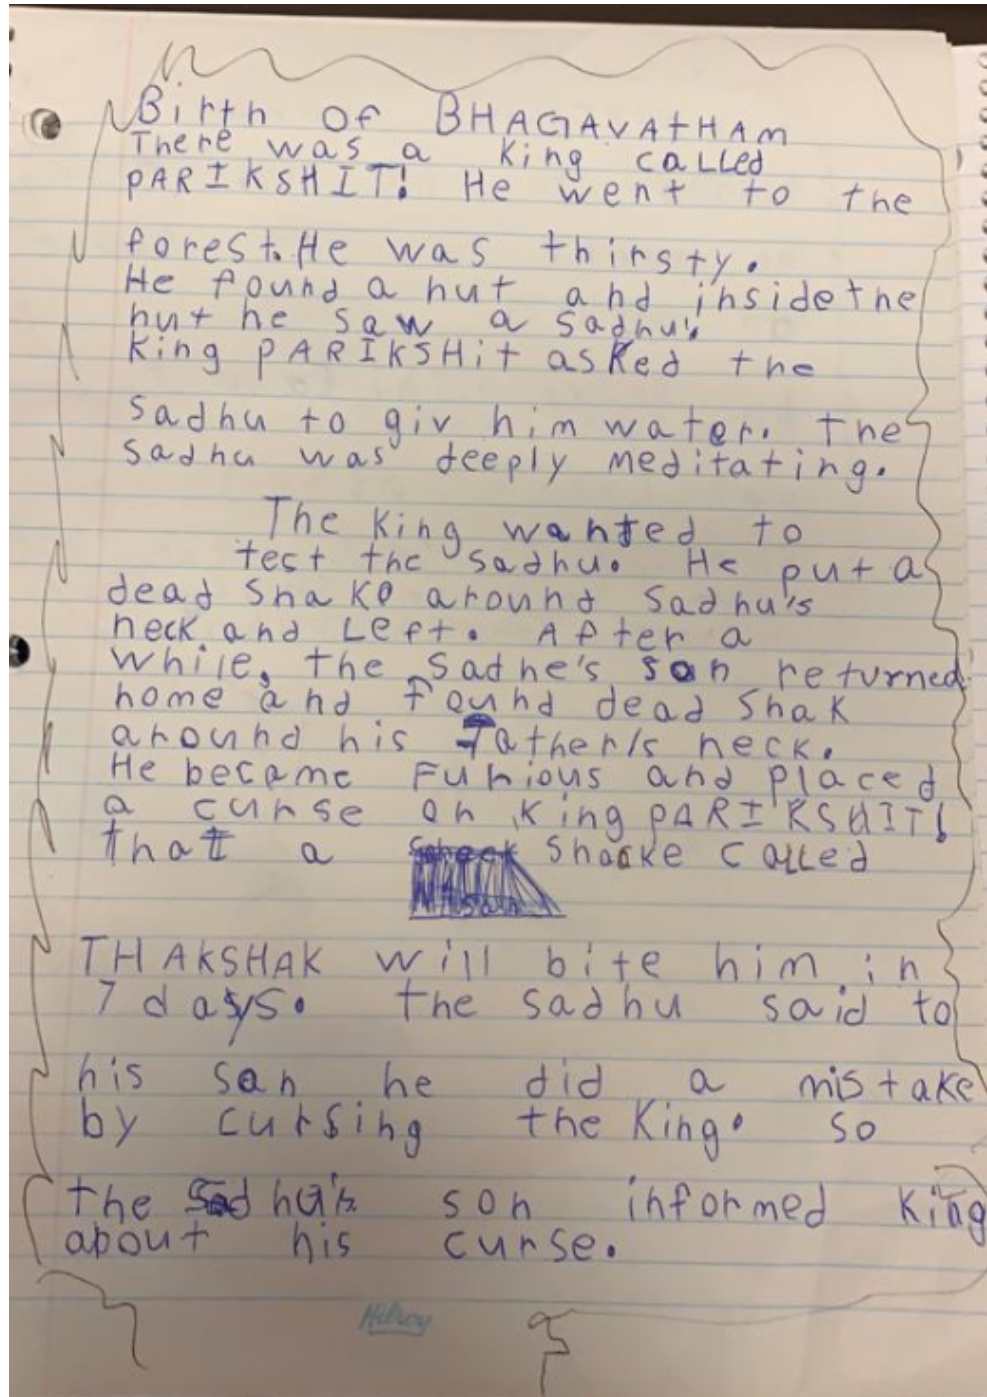 Birth of BHAGAVATHAM
There was a king called
PARIKSHIT! He went to the
forest. He was thirsty.
He found a hut and inside the
hut he saw a sadhu.
King PARIKSHit asked the
sadhu to giv him water. the
sadhu was deeply meditating.
The King wanted to
test the sadhu. He put a
dead snake around sadhu's
neck and Left. After a
while, the sadhe's son returned
home and found dead snak
around his father's neck.
He became Furious and placed
a curse on king PARIKSHIT!
that a snacke called
THAKSHAK will bite him in
7 days. the sadhu said to
his son he did a mistake
by cursing the King. so
the sadhu's son informed king
about his curse.
Hilroy